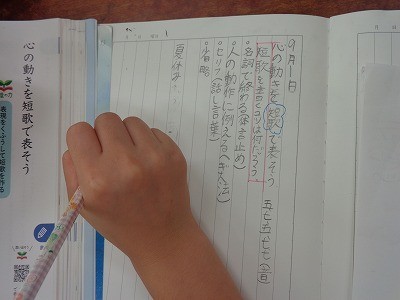 9月 日
心の動きを短歌で表そう
五七五七七(音)
短歌を書くコツは何だろう。
・名詞で終わる(体言止め)
・人の動作に例える(ぎ人法)
・セリフ(話し言葉)
・省略
夏休み
心の動きを短歌で表そう
表現をくふうして短歌を作る